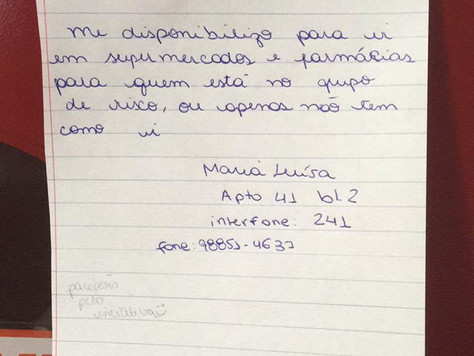 Me disponibilizo para ir
em supermercados e farmácias
para quem está no grupo
de risco, ou apenas não tem
como ir
Maria Luísa
Apto 41 bl.2
interfone: 241
fone: 98853-4637
parabéns
pela
iniciativa